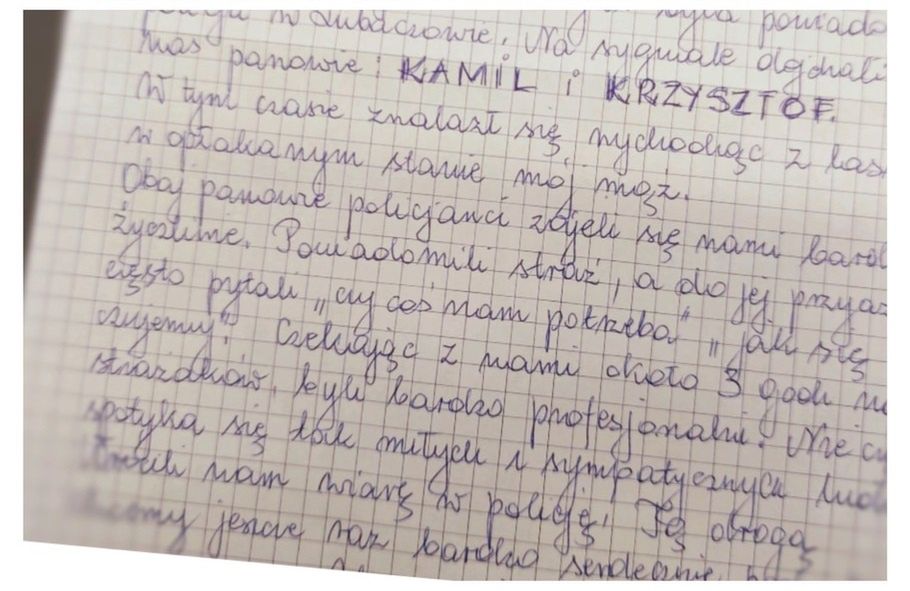 w Lubaczowie. Na sygnale dojechali
nas panowie: KAMIL i KRZYSZTOF.
W tym czasie znalazł się wychodząc z las
w opłakanym stanie mój mąż.
Obaj panowie policjanci zajeli się nami bard
życzliwie. Powiadomili straż, a do jej przyja
często pytali „czy coś nam potrzeba" „jak się
czujemy". Czekając z nami około 3 godz na
strażaków, byli bardzo profesjonalni. Nie cz
spotyka się tak miłych i sympatycznych ludz
nam wiarę w policję. Tą drogą
jeszcze raz bardzo serdecznie